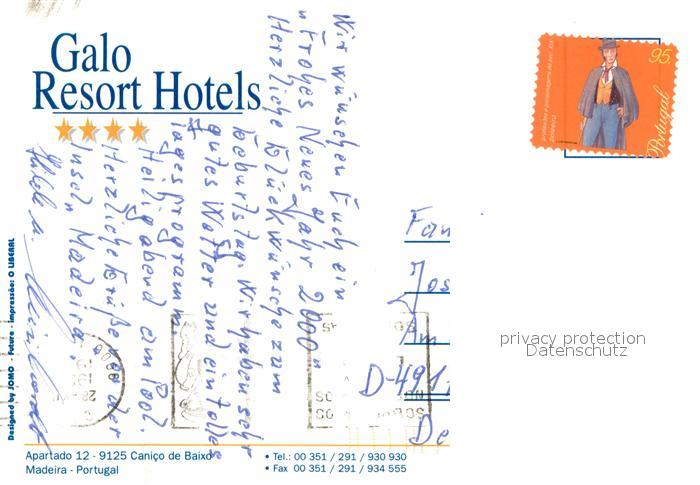 Galo
Resort Hotels
Wir wünschen Euch ein
"Frohes Neues Jahr 2000"
Herzliche Glückwünsche zum
Geburtstag. Wir haben sehr
gutes Wetter und ein tolles
Tagesprogramm
Heiligabend am Pool.
Herzliche Grüße von der
Insel Madeira.
95.
Portugal
Fam
Jos
Am
D-491
De
privacy protection
Datenschutz
Designed by JOMO - future - impressão: O LIBERAL
Apartado 12 - 9125 Caniço de Baixo
Madeira - Portugal
• Tel.: 00 351 / 291 / 930 930
• Fax 00 351 / 291 / 934 555